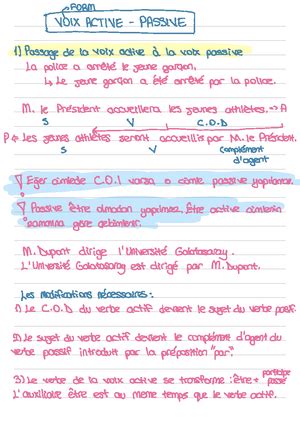 FORM
VOIX ACTIVE - PASSIVE
1) Passage de la voix active à la voix passive
La police a arrêté le jeune garçon.
↳ Le jeune garçon a été arrêté par la police.
M. le Président accueillera les jeunes athlètes. → A
S V C.O.D
P ← Les jeunes athlètes seront accueillis par M. le Président.
S V Complément
d'agent
! Eğer cümlede C.O.I varsa o cümle passive yapılamaz.
! Passive être almadan yapılmaz, être active cümlenin
zamanına göre çekimlenir.
M. Dupont dirige l'Université Galatasaray.
L'Université Galatasaray est dirigé par M. Dupont.
Les modifications nécessaires:
1) Le C.O.D du verbe actif devient le sujet du verbe passif.
2) Le sujet du verbe actif devient le complément d'agent du
verbe passif introduit par la préposition "par".
3) Le verbe de la voix active se transforme: être + participe
passé
L'auxiliaire être est au même temps que le verbe actif.